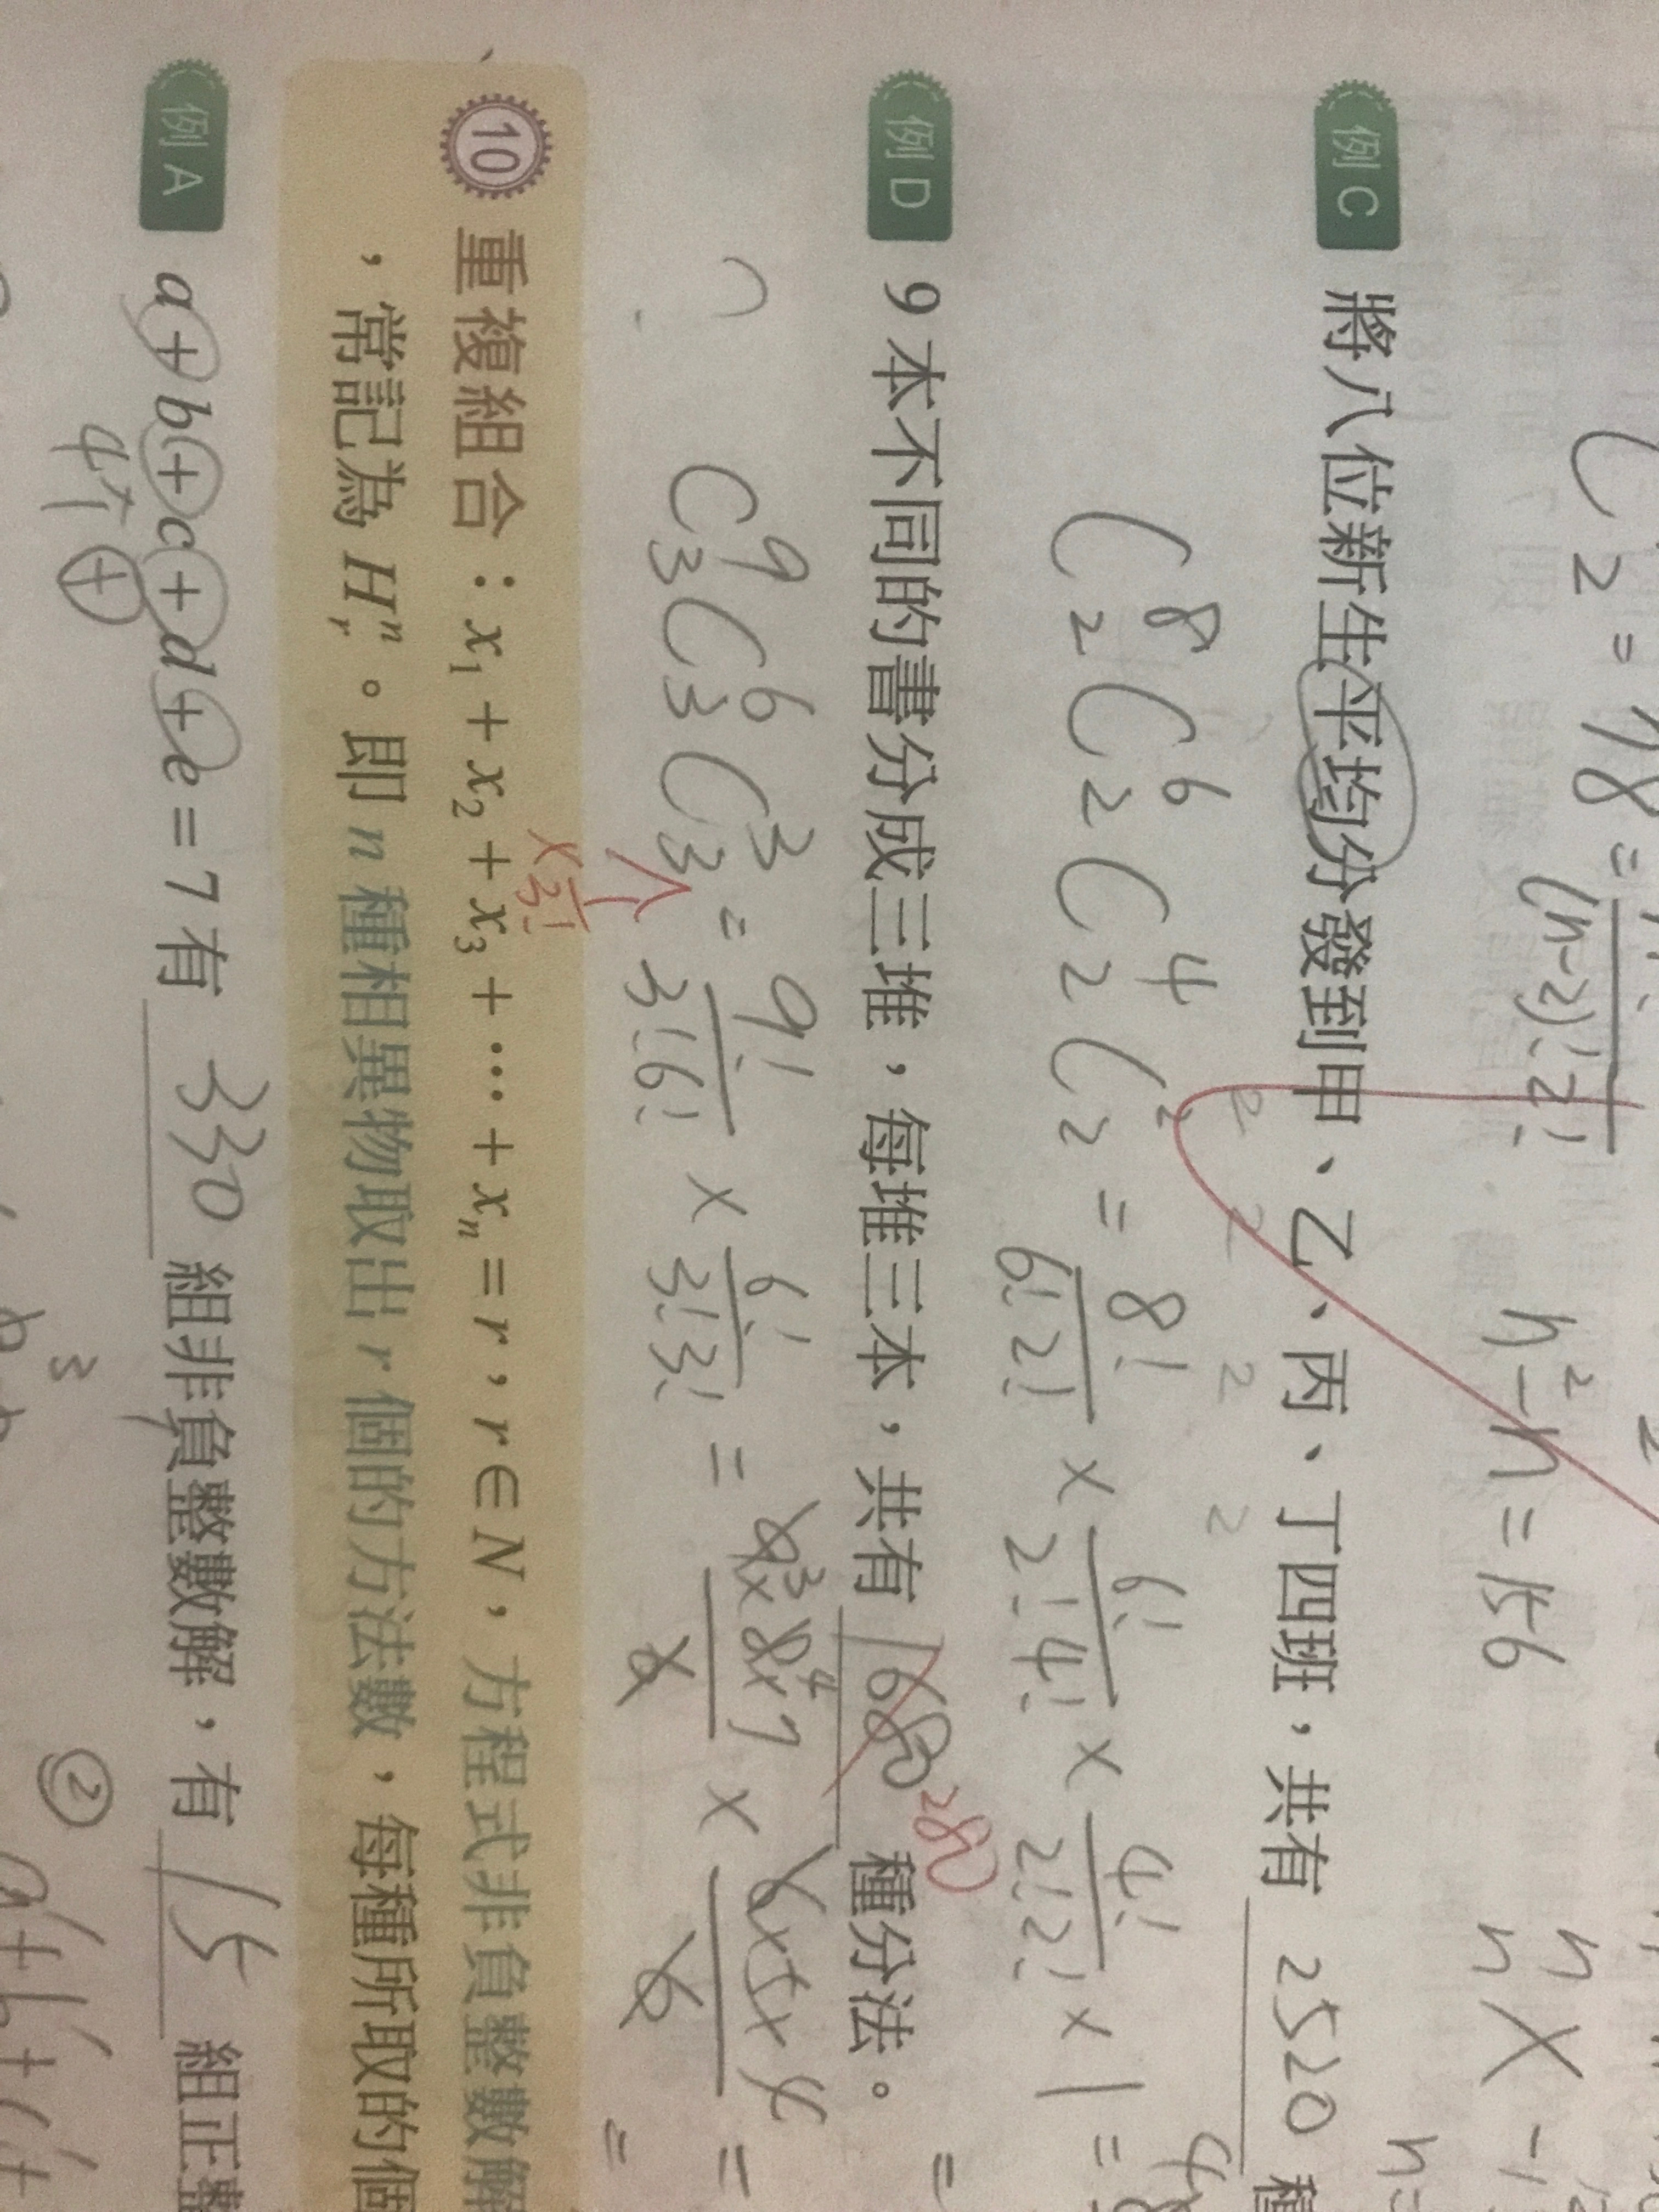 C 2 = 78 = (n-2)!2! n²-n=156
例C 將八位新生平均分發到甲、乙、丙、丁四班，共有 2520 種
2 2 2 2
C⁸₂ C⁶₂ C⁴₂ C²₂ = 8!/6!2! × 6!/2!4! × 4!/2!2! × 1 =
例D 9 本不同的書分成三堆，每堆三本，共有 1680 280 種分法。
C⁹₃ C⁶₃ C³₃ = 9!/3!6! × 6!/3!3! = 9×8×7/6 × 6×5×4/6 =
× 1/3!
10 重複組合：x₁ + x₂ + x₃ + ⋯ + xₙ = r，r ∈ N，方程式非負整數解
，常記為 Hⁿᵣ。即 n 種相異物取出 r 個的方法數，每種所取的個
例A a + b + c + d + e = 7 有 330 組非負整數解，有 15 組正整
4個 + ②